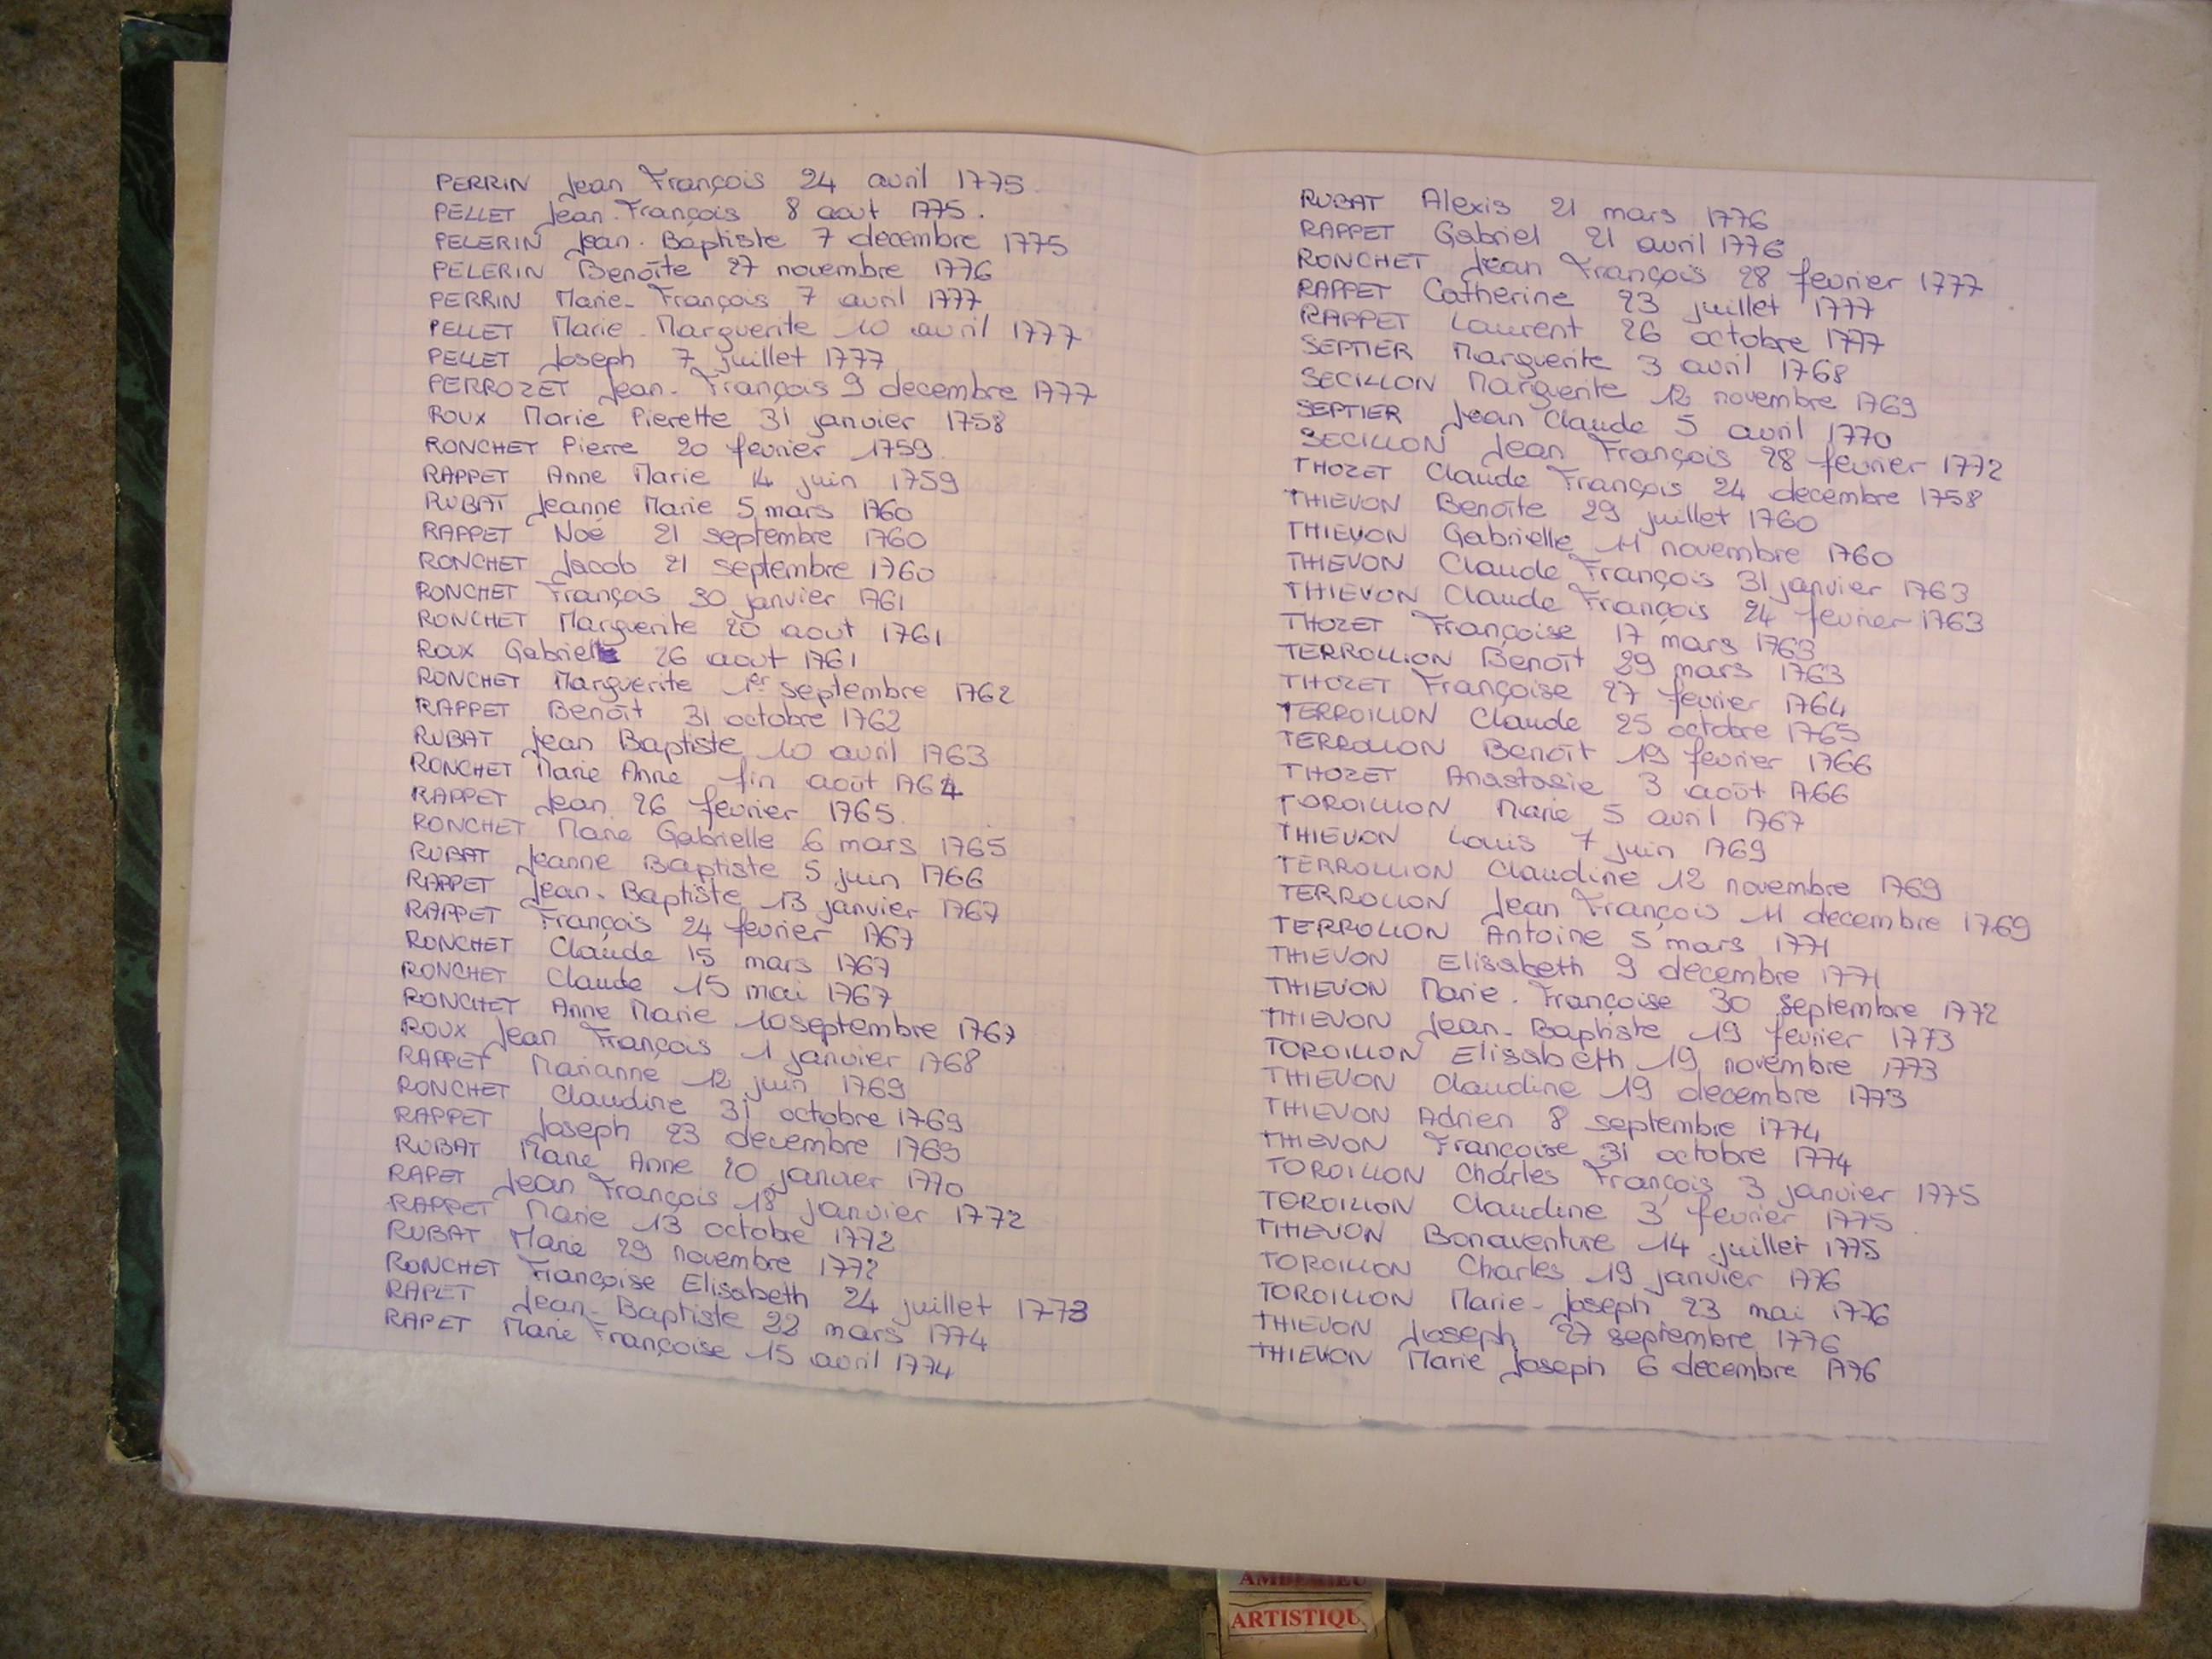 PERRIN Jean François 24 avril 1775
PELLET Jean-François 8 aout 1775.
PELERIN Jean-Baptiste 7 decembre 1775
PELERIN Benoîte 27 novembre 1776
PERRIN Marie-François 7 avril 1777
PELLET Marie-Marguerite 10 avril 1777
PELLET Joseph 7 juillet 1777
PERROZET Jean-François 9 decembre 1777
ROUX Marie Pierette 31 janvier 1758
RONCHET Pierre 20 fevrier 1759
RAPPET Anne Marie 14 juin 1759
RUBAT Jeanne Marie 5 mars 1760
RAPPET Noé 21 septembre 1760
RONCHET Jacob 21 septembre 1760
RONCHET François 30 janvier 1761
RONCHET Marguerite 20 aout 1761
ROUX Gabriel 26 aout 1761
RONCHET Marguerite 1er septembre 1762
RAPPET Benoît 31 octobre 1762
RUBAT Jean Baptiste 10 avril 1763
RONCHET Marie Anne fin août 1764
RAPPET Jean 26 fevrier 1765
RONCHET Marie Gabrielle 6 mars 1765
RUBAT Jeanne Baptiste 5 juin 1766
RAPPET Jean-Baptiste 13 janvier 1767
RAPPET François 24 fevrier 1767
RONCHET Claude 15 mars 1767
RONCHET Claude 15 mai 1767
RONCHET Anne Marie 10 septembre 1767
ROUX Jean François 1 janvier 1768
RAPPET Marianne 12 juin 1769
RONCHET Claudine 31 octobre 1769
RAPPET Joseph 23 decembre 1769
RUBAT Marie Anne 20 janvier 1770
RAPET Jean François 18 janvier 1772
RAPPET Marie 13 octobre 1772
RUBAT Marie 29 novembre 1772
RONCHET Françoise Elisabeth 24 juillet 1773
RAPET Jean-Baptiste 22 mars 1774
RAPET Marie Françoise 15 avril 1774
RUBAT Alexis 21 mars 1776
RAPPET Gabriel 21 avril 1776
RONCHET Jean François 28 fevrier 1777
RAPPET Catherine 23 juillet 1777
RAPPET Laurent 26 octobre 1777
SEPTIER Marguerite 3 avril 1768
SECILLON Marguerite 12 novembre 1769
SEPTIER Jean Claude 5 avril 1770
SECILLON Jean François 28 fevrier 1772
THOZET Claude François 24 decembre 1758
THIEVON Benoîte 29 juillet 1760
THIEVON Gabrielle 11 novembre 1760
THIEVON Claude François 31 janvier 1763
THIEVON Claude François 24 fevrier 1763
THOZET Françoise 17 mars 1763
TERROLLION Benoît 29 mars 1763
THOZET Françoise 27 fevrier 1764
TERROILLON Claude 25 octobre 1765
TERROLLON Benoît 19 fevrier 1766
THOZET Anastasie 3 août 1766
TOROILLION Marie 5 avril 1767
THIEVON Louis 7 juin 1769
TERROLLION Claudine 12 novembre 1769
TERROLLON Jean François 11 decembre 1769
TERROLLON Antoine 5 mars 1771
THIEVON Elisabeth 9 decembre 1771
THIEVON Marie-Françoise 30 septembre 1772
THIEVON Jean-Baptiste 19 fevrier 1773
TOROILLON Elisabeth 19 novembre 1773
THIEVON Claudine 19 decembre 1773
THIEVON Adrien 8 septembre 1774
THIEVON Françoise 31 octobre 1774
TOROILLON Charles François 3 janvier 1775
TOROILLON Claudine 3 fevrier 1775
THIEVON Bonaventure 14 juillet 1775
TOROILLON Charles 19 janvier 1776
TOROILLON Marie-Joseph 23 mai 1776
THIEVON Joseph 27 septembre 1776
THIEVON Marie Joseph 6 decembre 1776
ARTISTIQU